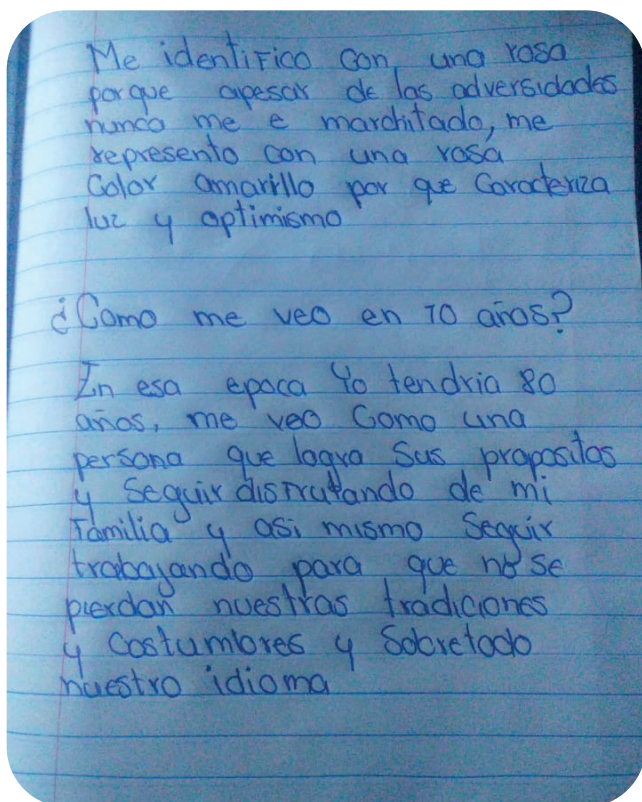 Me identifico con una rosa
porque apesar de las adversidades
nunca me e marchitado, me
represento con una rosa
Color amarillo por que Caracteriza
luz y optimismo
¿Como me veo en 10 años?
En esa epoca Yo tendria 80
años, me veo Como una
persona que logra Sus propositos
y Seguir disfrutando de mi
Familia y asi mismo Seguir
trabajando para que no se
pierdan nuestras tradiciones
y Costumbres y Sobretodo
nuestro idioma